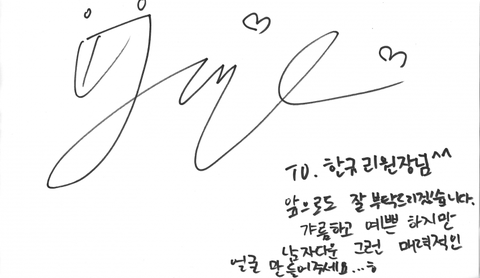 TO. 한규리원장님^^
앞으로도 잘 부탁드리겠습니다.
갸름하고 예쁜 하지만
남자다운 그런 매력적인
얼굴 만들어주세요...ㅎ